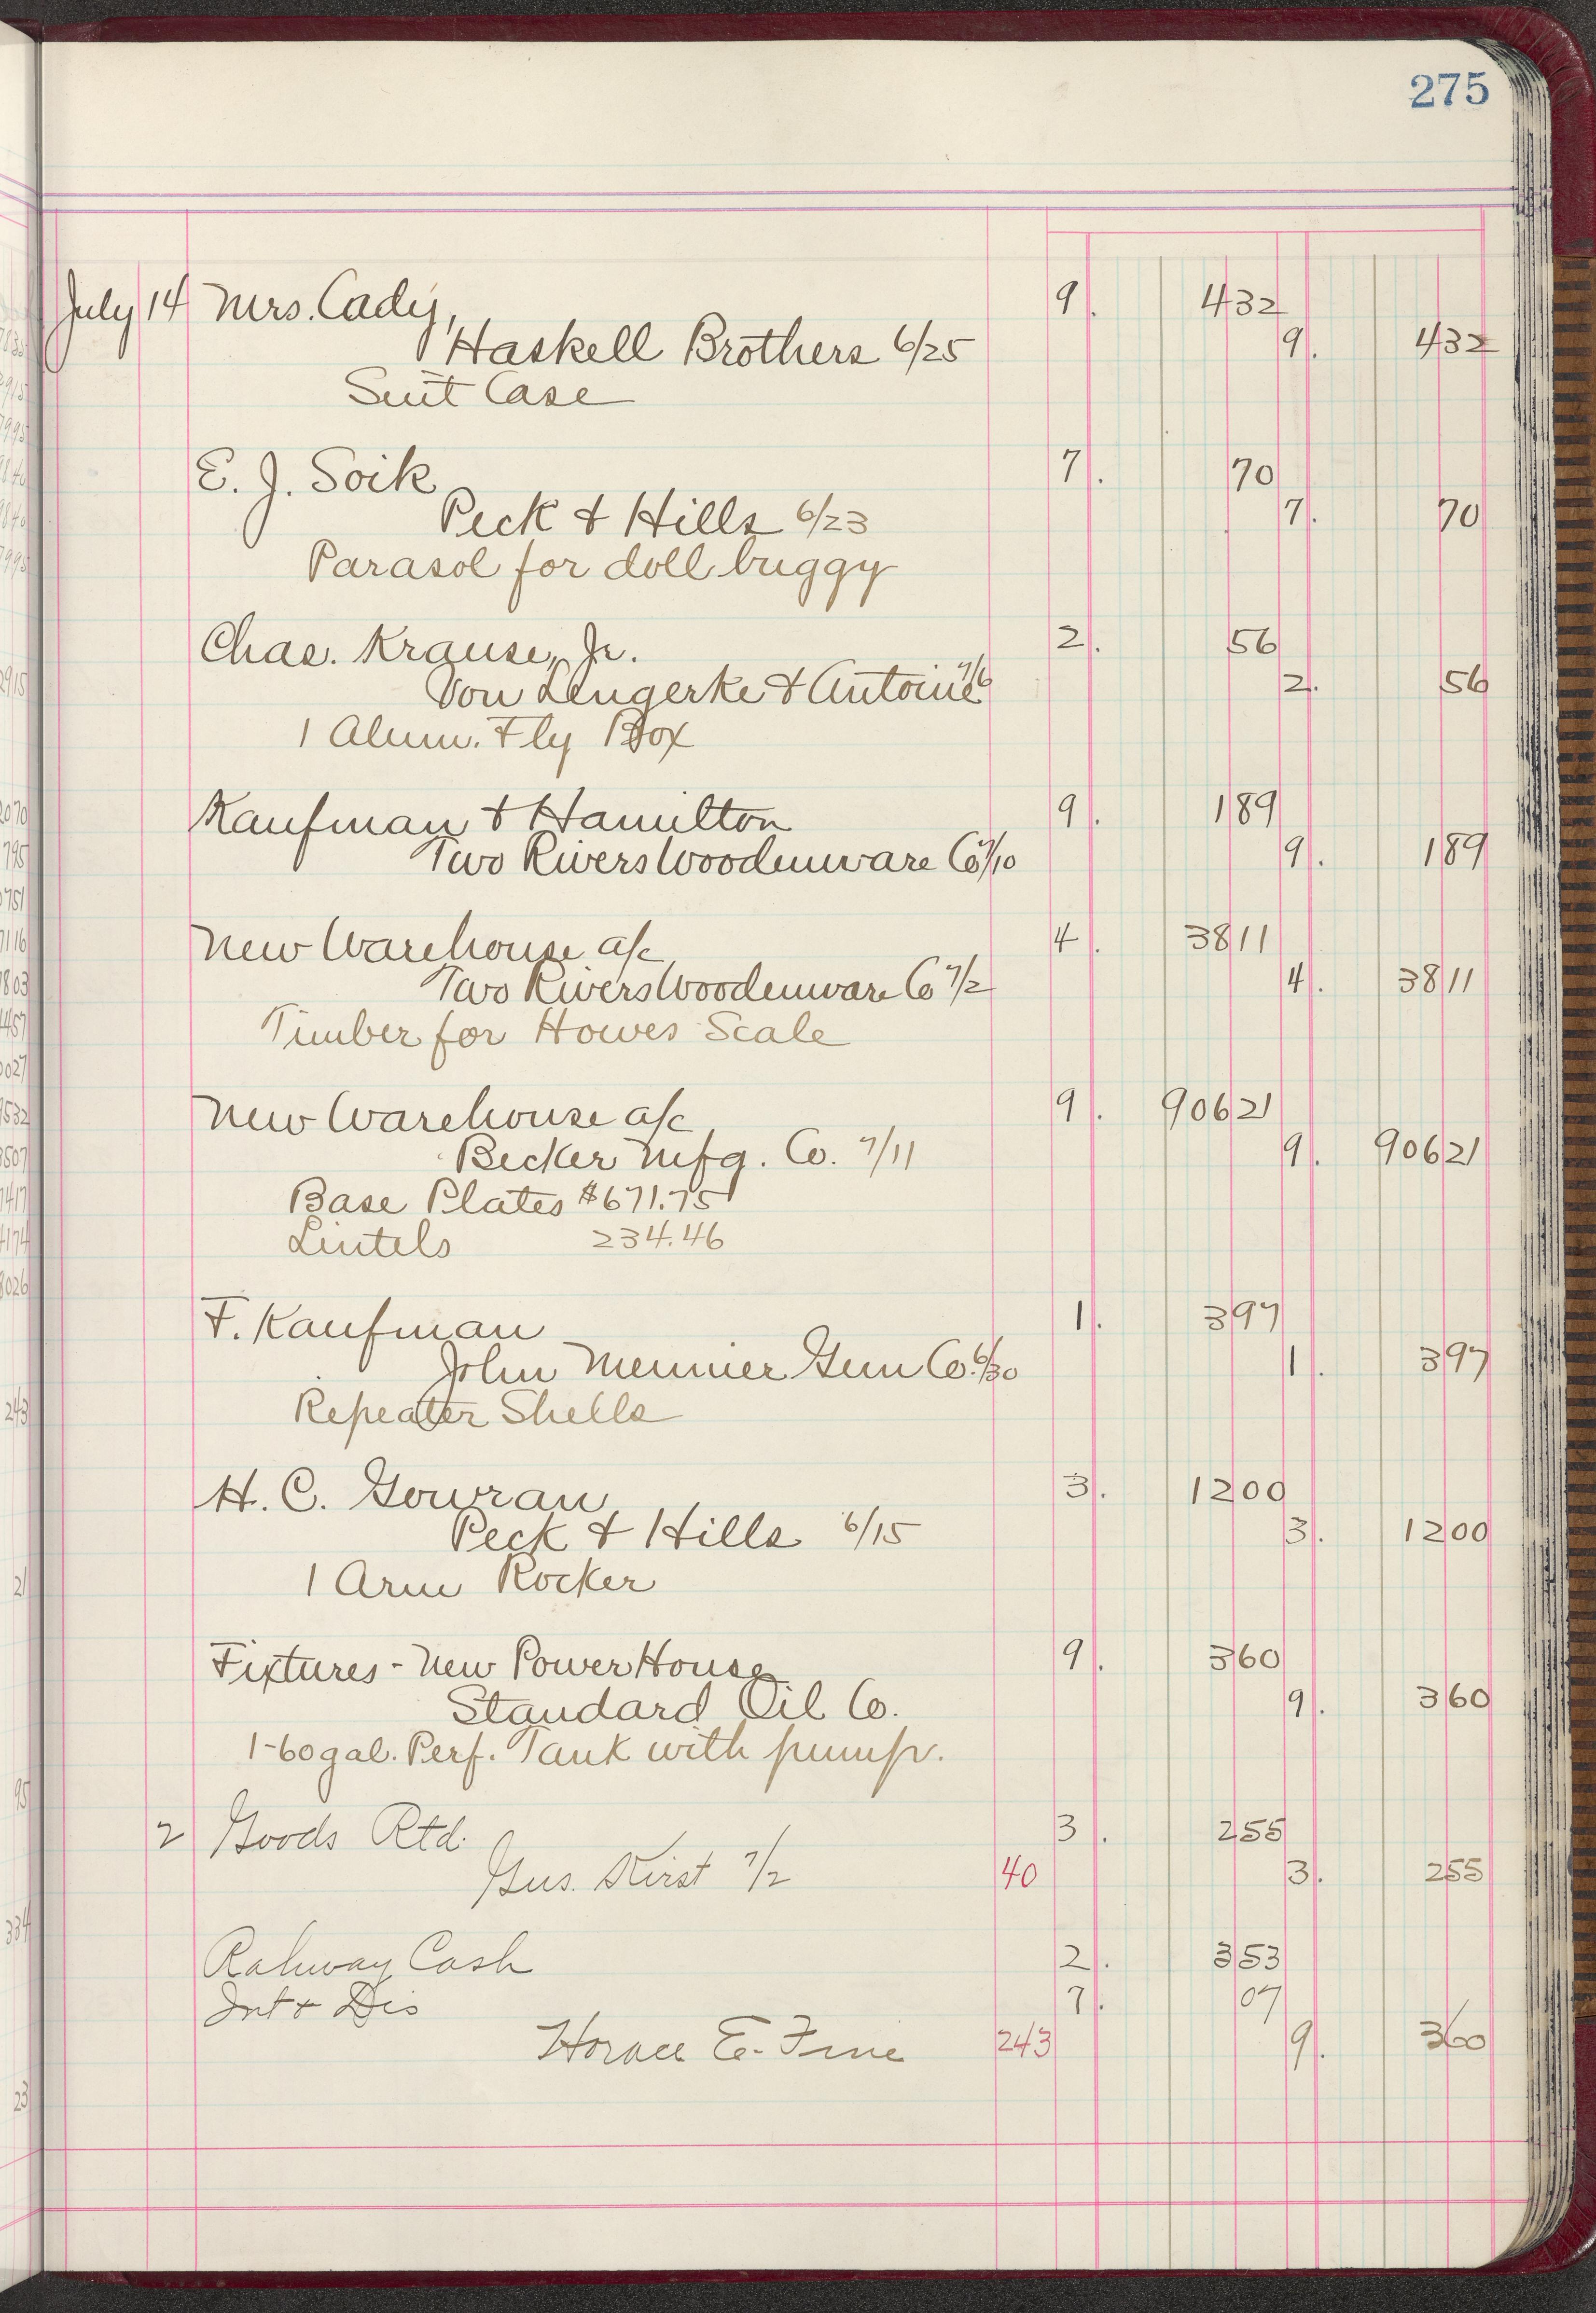 275
July 14 Mrs. Cady, 9. 432
Haskell Brothers 6/25 9. 432
Suit Case
E. J. Soik 7. 70
Peck & Hills 6/23 7. 70
Parasol for doll buggy
Chas. Krause, Jr. 2. 56
Von Lengerke & Antoine 7/6 2. 56
1 Alum. Fly Box
Kaufman & Hamilton 9. 189
Two Rivers Woodenware Co 7/10 9. 189
New Warehouse a/c 4. 3811
Two Rivers Woodenware Co 7/2 4. 3811
Timber for Howes Scale
New Warehouse a/c 9. 90621
Becker Mfg. Co. 7/11 9. 90621
Base Plates $671.75
Lintels 234.46
F. Kaufman 1. 397
John Meunier Gun Co. 6/30 1. 397
Repeater Shells
H. C. Gowran 3. 1200
Peck & Hills 6/15 3. 1200
1 Arm Rocker
Fixtures - New Power House 9. 360
Standard Oil Co. 9. 360
1-60 gal. Perf. Tank with pump.
2 Goods Rtd. 3. 255
Gus. Kirst 7/2 40 3. 255
Rahway Cash 2. 353
Int & Dis 7. 07
Horace E. Fine 243 9. 360